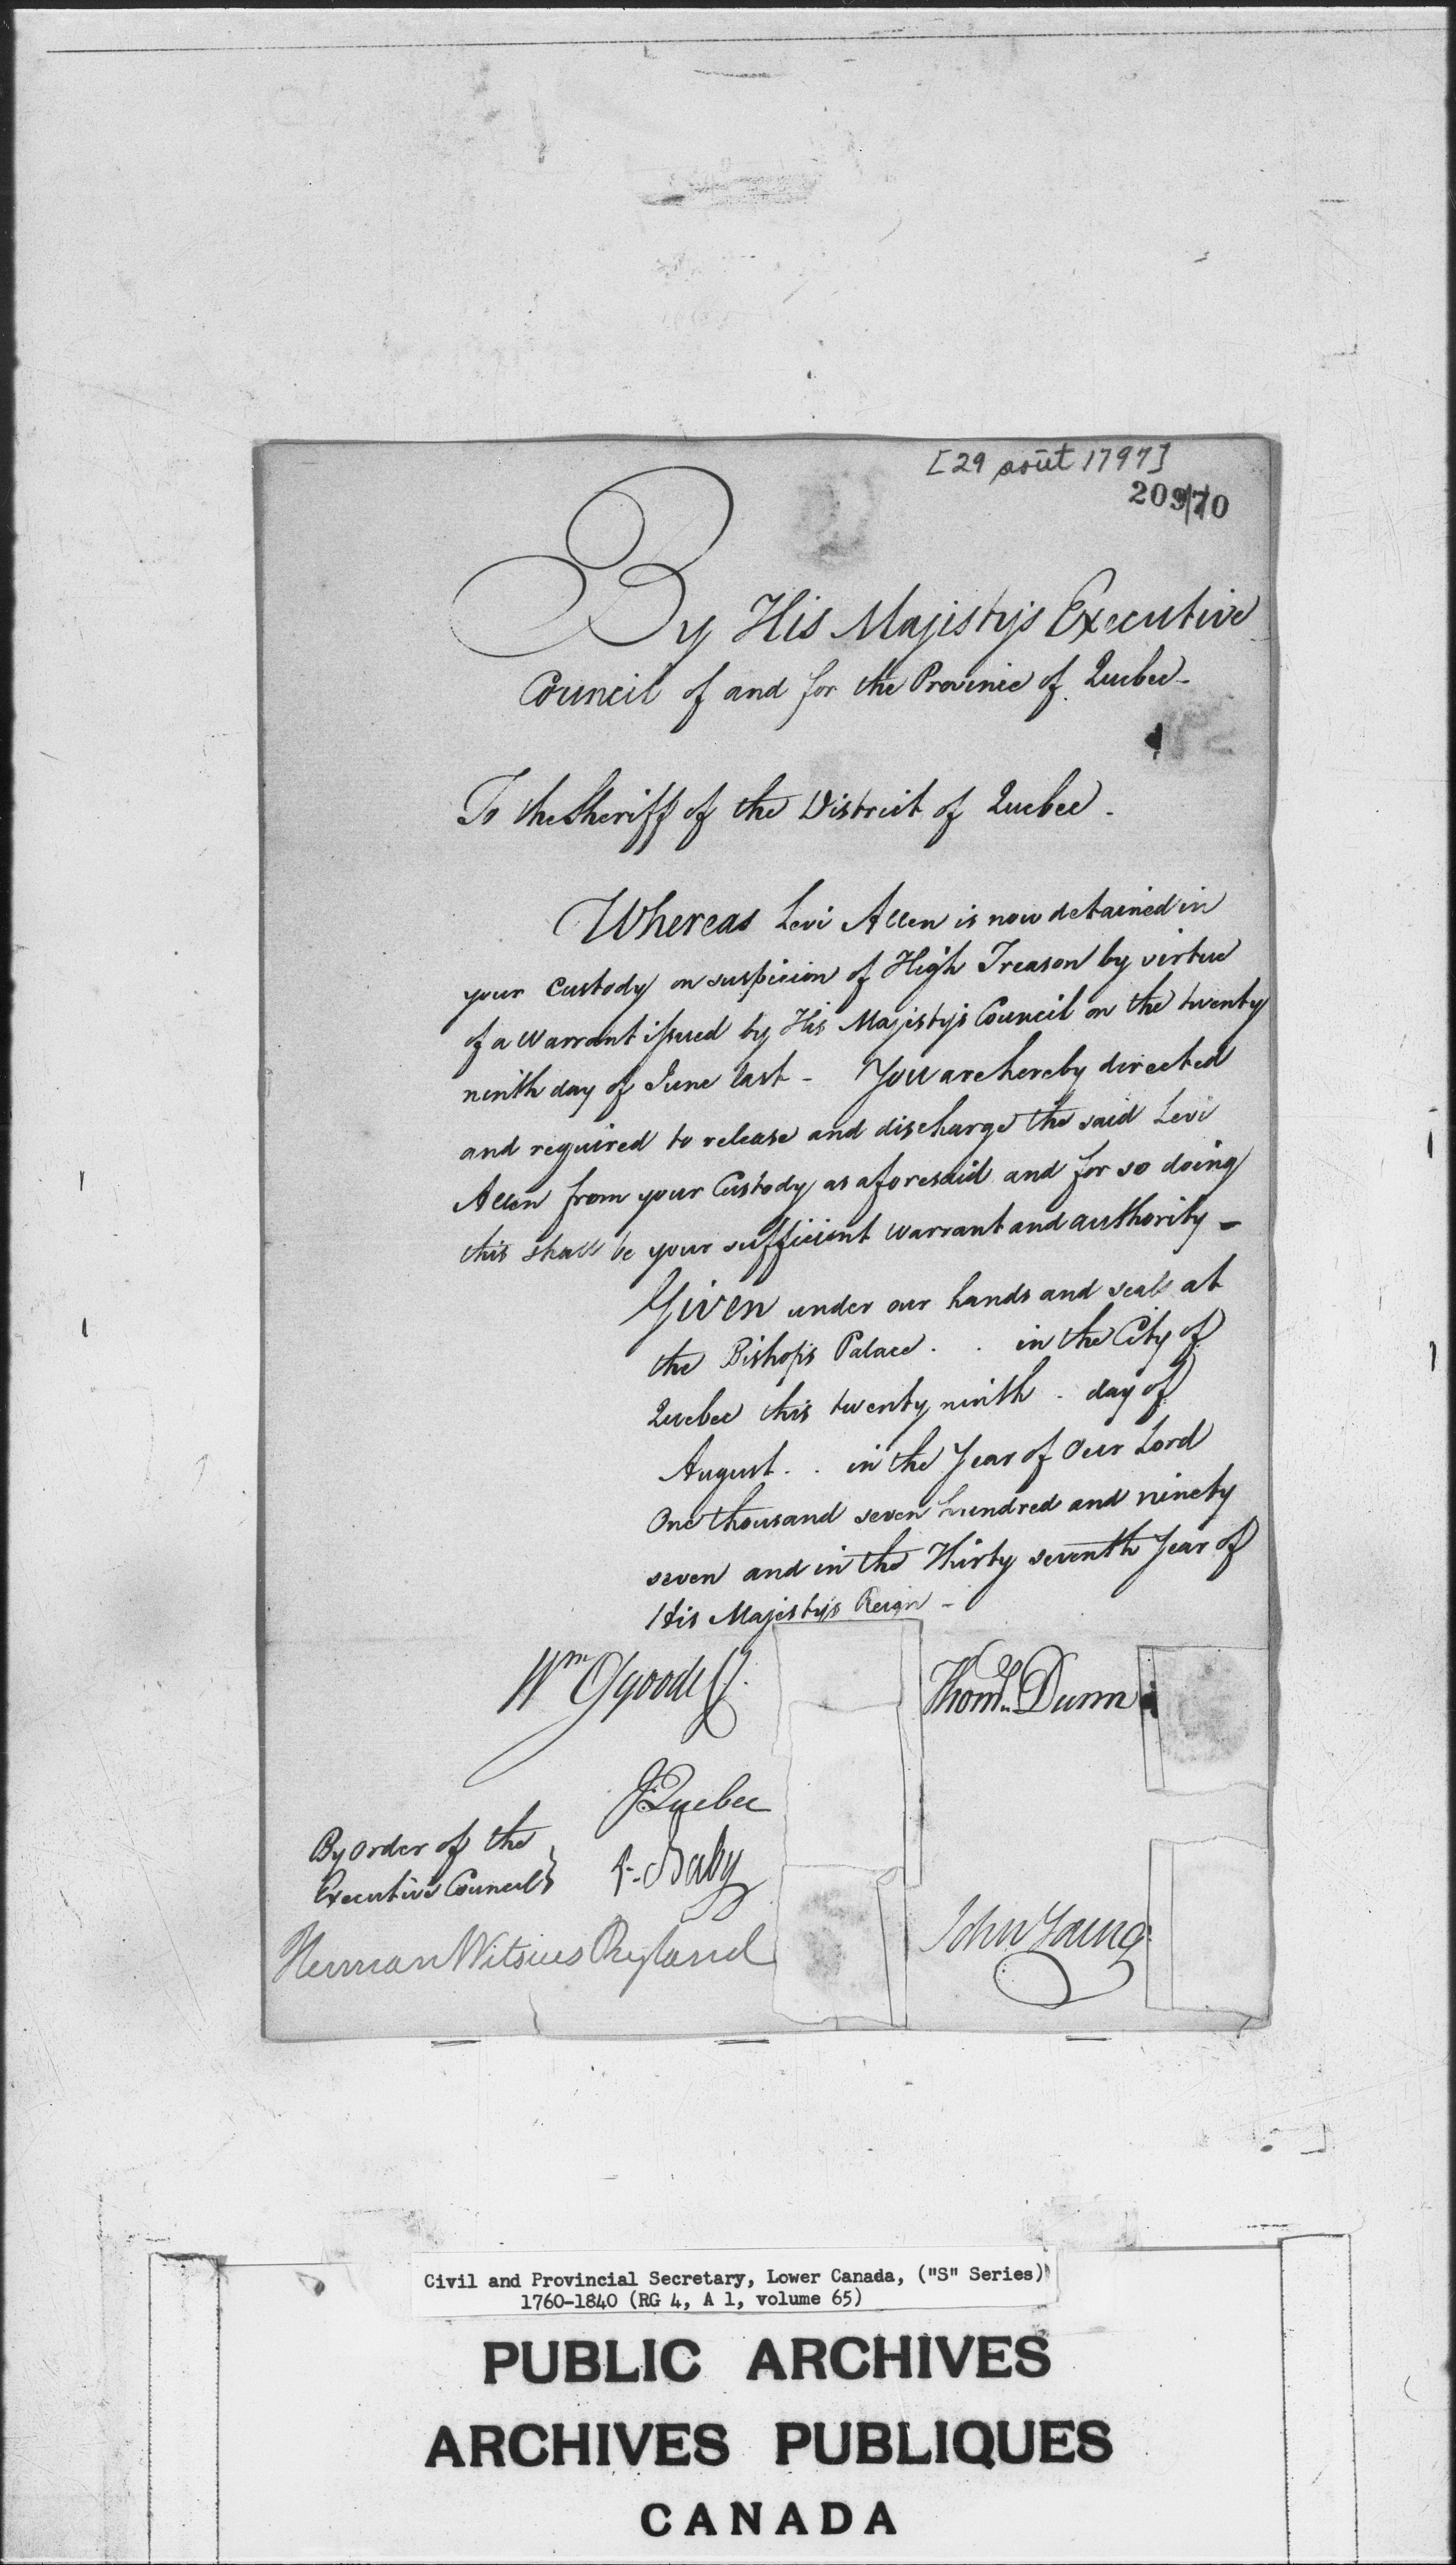 [29 août 1797]
20970
By His Majesty's Executive
Council of and for the Province of Quebec -
To the Sheriff of the District of Quebec -
Whereas Levi Allen is now detained in
your Custody on suspicion of High Treason by virtue
of a Warrant issued by His Majesty's Council on the twenty
ninth day of June last - You are hereby directed
and required to release and discharge the said Levi
Allen from your Custody as aforesaid and for so doing
this shall be your sufficient warrant and authority -
Given under our hands and seals at
the Bishop's Palace . . in the City of
Quebec this twenty ninth . day of
August . . in the Year of Our Lord
One thousand seven hundred and ninety
seven and in the Thirty seventh Year of
His Majesty's Reign -
Wm Osgoode CJ.
Thoms. Dunn
J. Quebec
By order of the
Executive Council }
f. Baby
John Young
Herman Witsius Ryland
Civil and Provincial Secretary, Lower Canada, ("S" Series)
1760-1840 (RG 4, A 1, volume 65)
PUBLIC ARCHIVES
ARCHIVES PUBLIQUES
CANADA